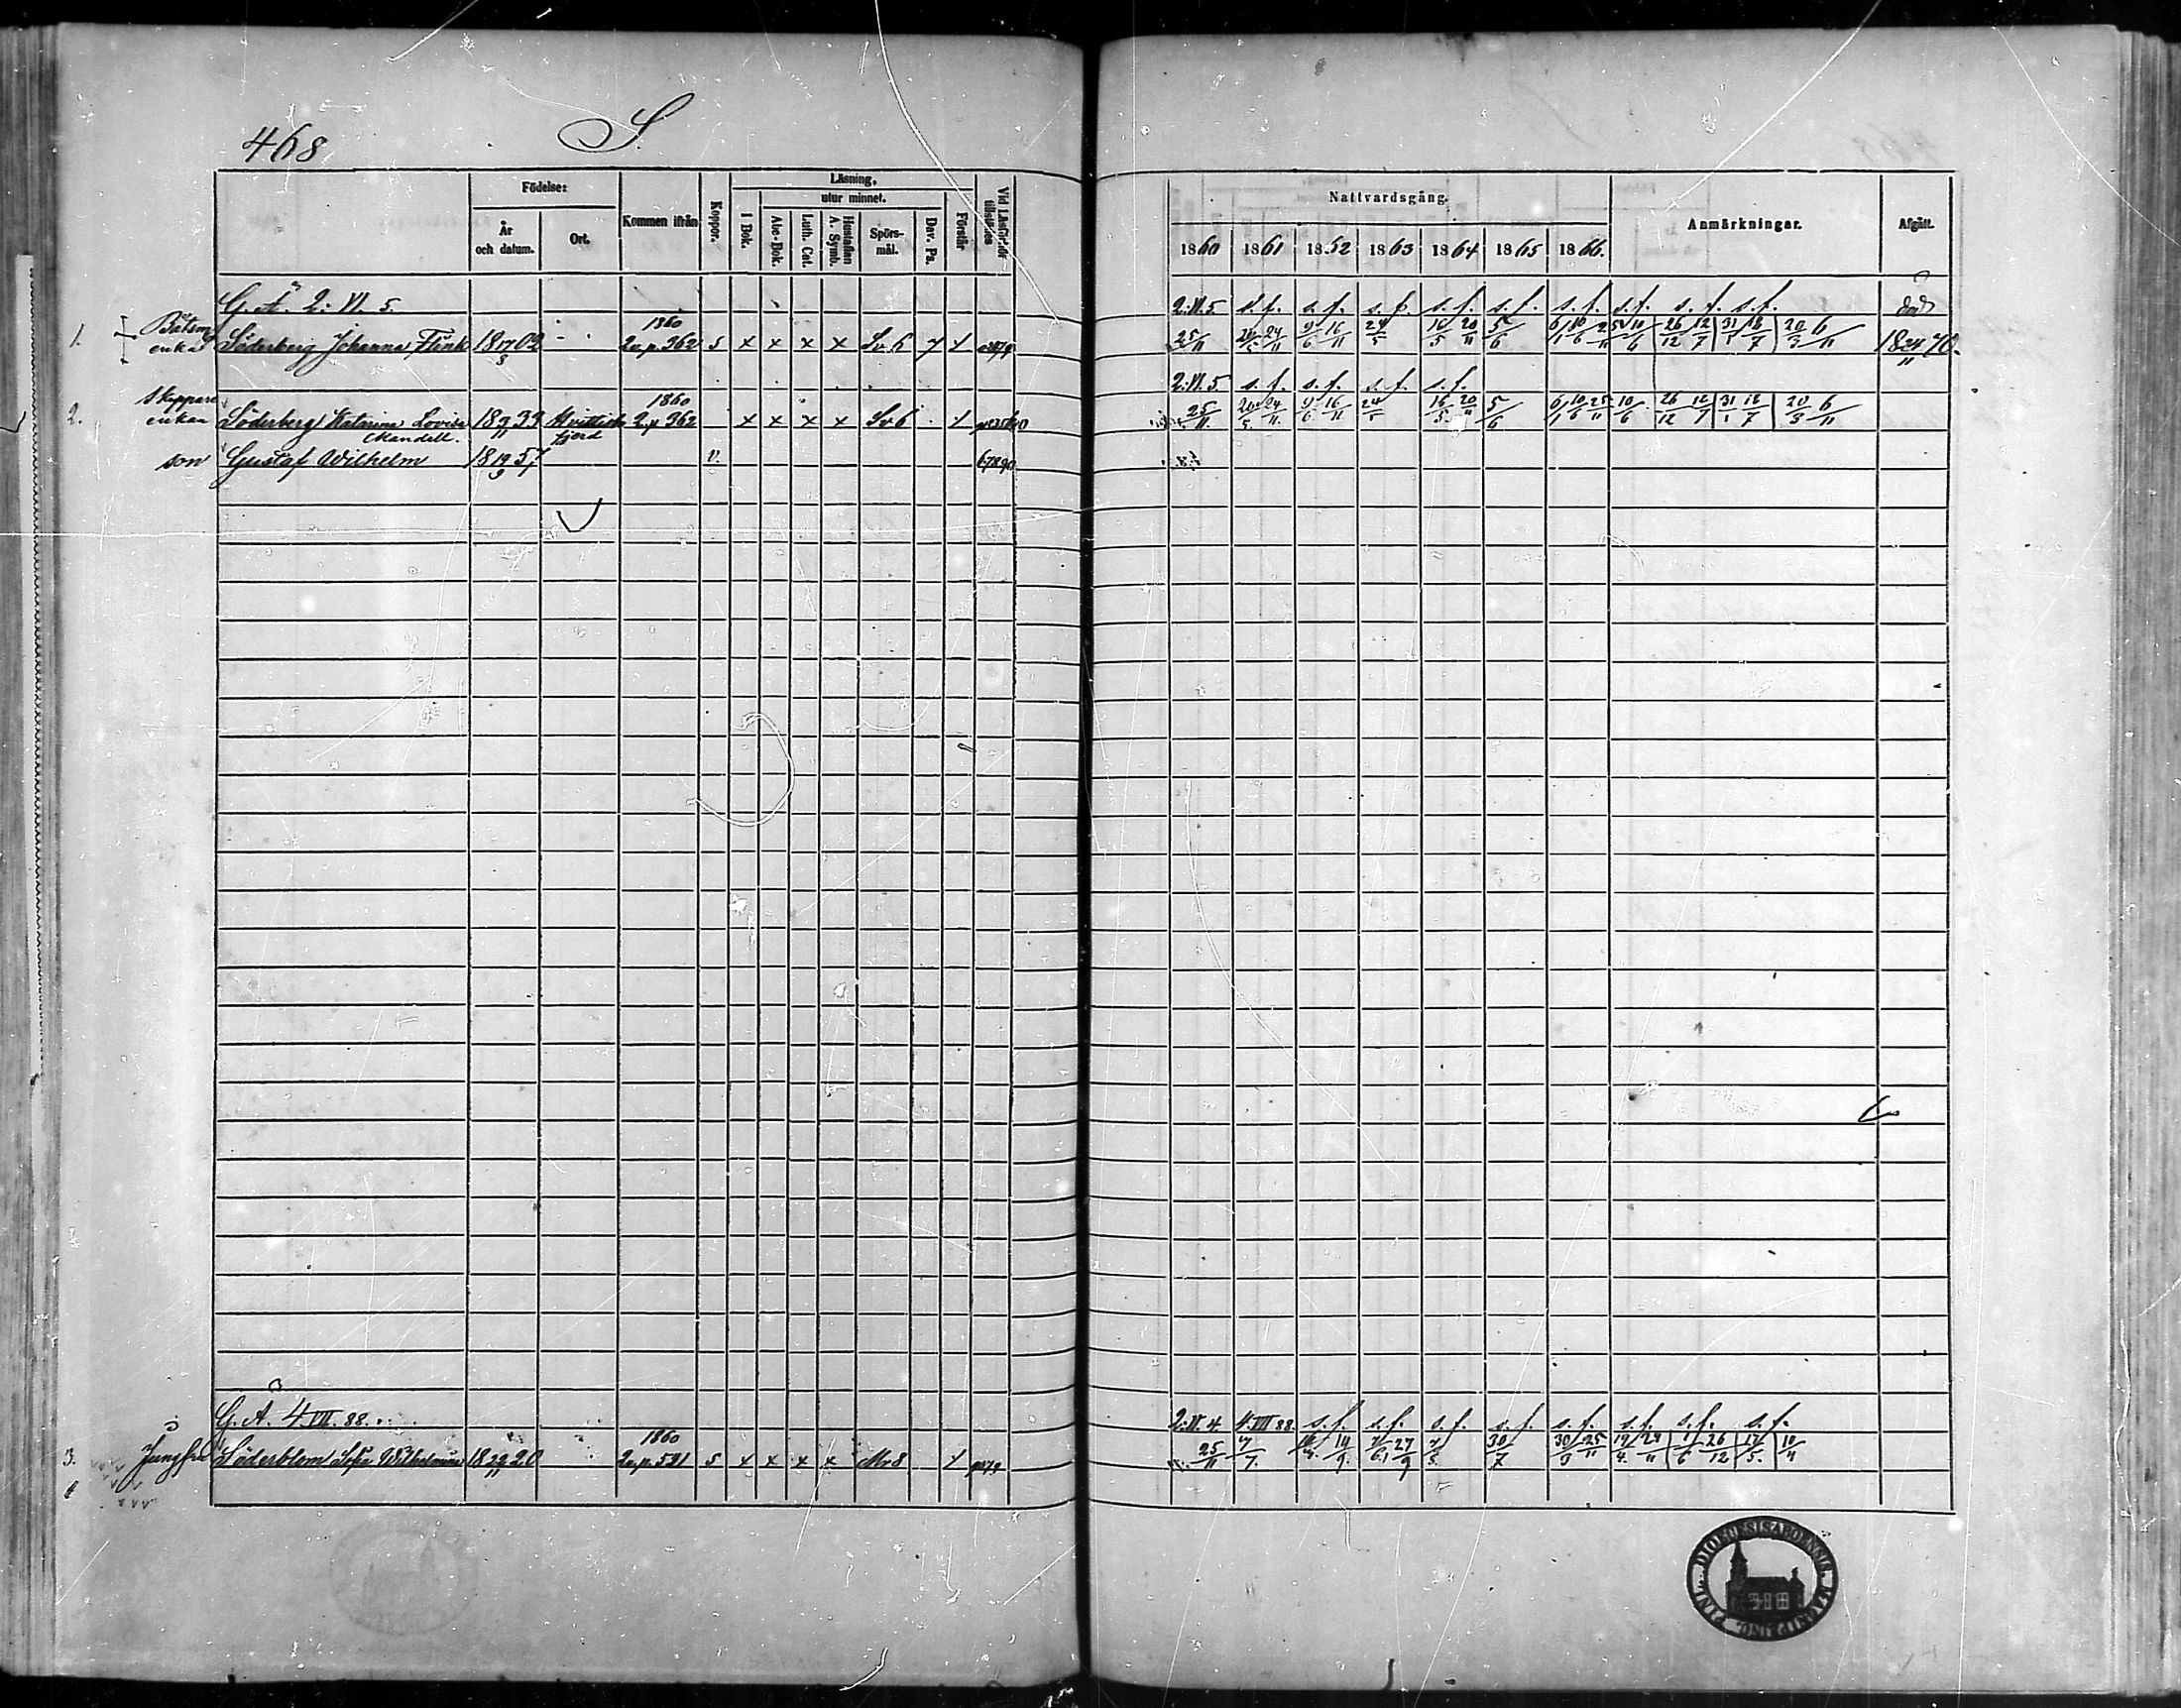 468 S.
Födelse:
Läsning,
utur minnet.
År och datum.
Ort.
Kommen ifrån
Koppor.
i Bok.
Abc-Bok.
Luth. Cat.
Hustaflan A. Symb.
Spörsmål.
Dav. Ps.
Förstår
Nattvardsgång.
Anmärkningar.
Afgått.
1860 1861 1852 1863 1864 1865 1866.
G. A. 2. VI. 5.
2. VI. 5 s. f. s. f. s. f. s. f. s. f. s. f. s. f. s. f. s. f. död
1. Båtsm enka Söderberg Johanna Flink 18 17/8 02 1860 2 u.p. 362 s x x x x Sv. 6 7 25/11 24/11 9/6 16/11 24/5 16/5 20/11 5/6 6/1 10/6 25/11 10/6 26/12 12/7 31/1 18/7 20/3 6/11 18 24/11 70.
2. VI. 5 s. f. s. f. s. f. s. f.
2. Skeppare enkan Söderberg Katarina Lovisa Mandell. 18 9/11 33 Hvittisbofjerd 1860 2 u.p 362 x x x x Sv 6 25/11 24/11 9/6 16/11 24/5 16/5 20/11 5/6 6/1 10/6 25/11 10/6 26/12 12/7 31/1 18/7 20/3 6/11
son Gustaf Wilhelm 18 19/9 57 v. 67890
G. A. 4. VII. 88.
2. IV. 4 4. VII 88. s. f. s. f. s. f. s. f. s. f. s. f. s. f. s. f.
3. Jungfru Söderblom Sofia Wilhelmina 18 29/11 20 1860 2 u.p. 581 s x x x x Mv 8 25/11 7/7 30/7 30/9 25/11 19/4 24/11 1/6 26/12 17/5 10/11
DIOECESIS ABOENSIS